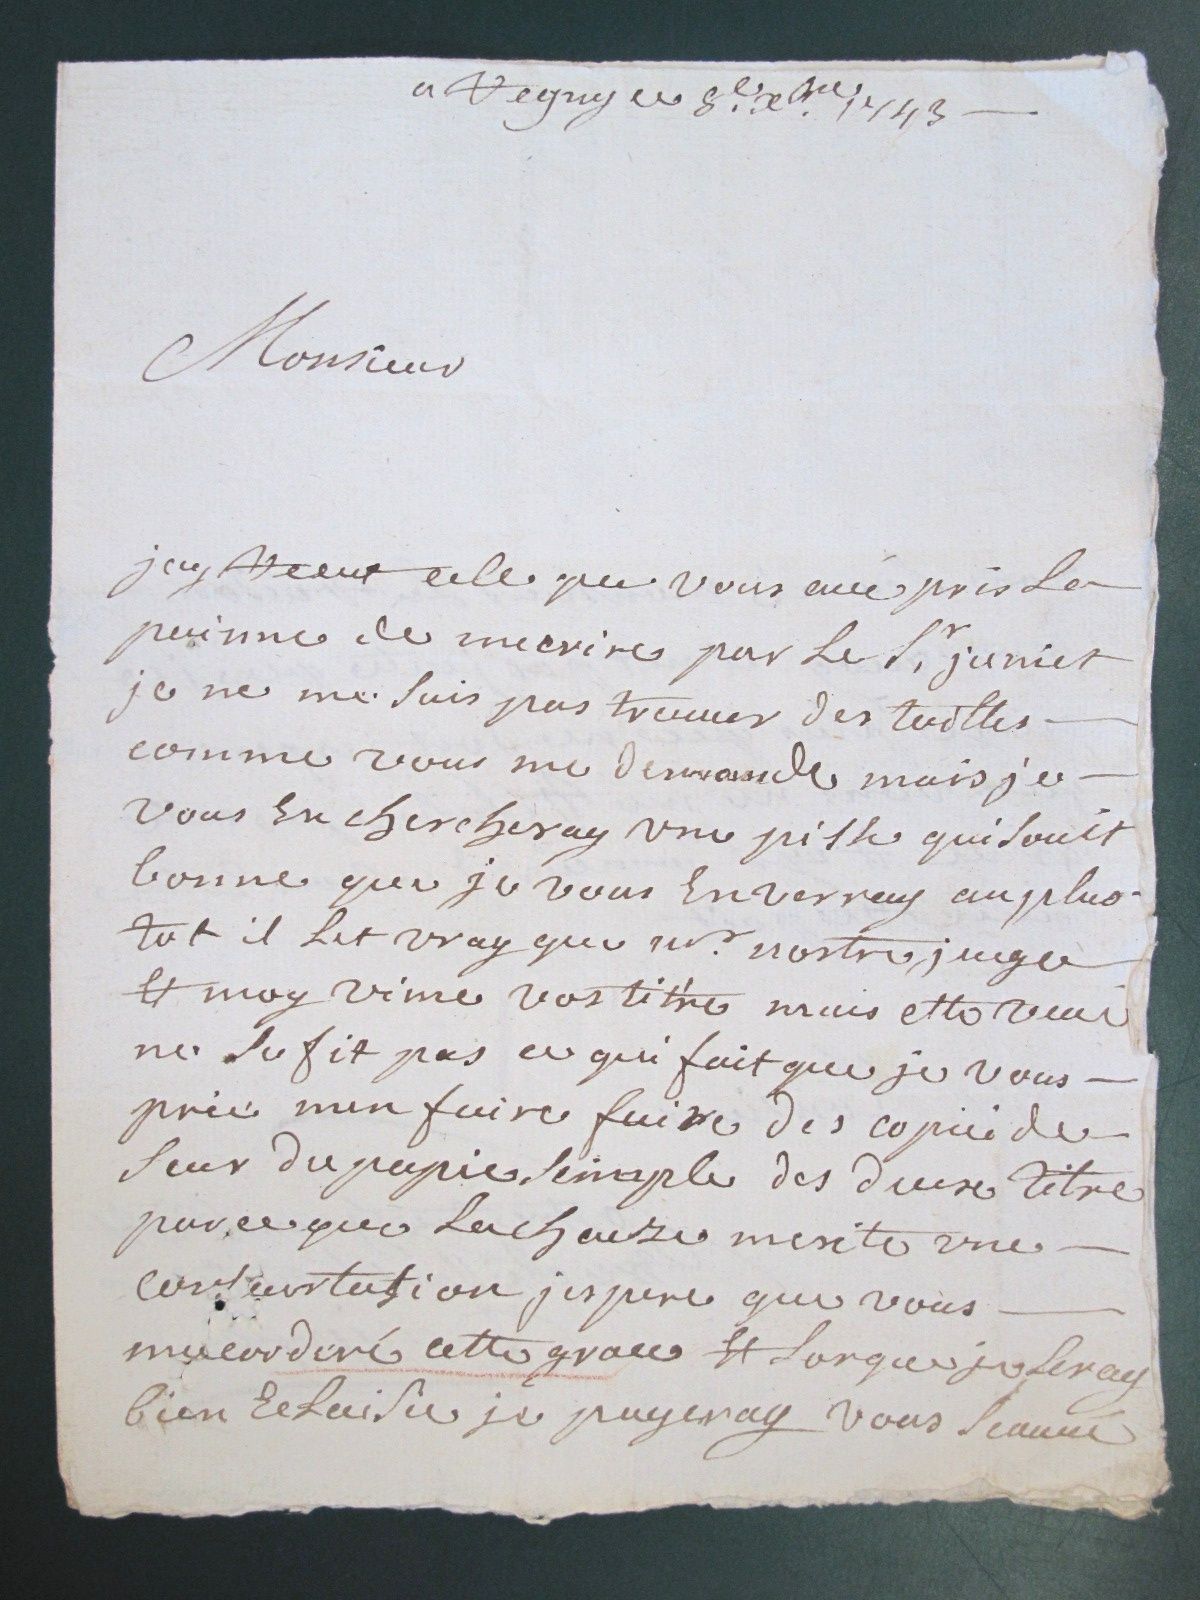 a Regny ce 8e. xbre. 1743
Monsieur
jay Receut celle que vous avé pris La
peinne de mecrire par Le Sr. juniet
je ne me suis pas trouver des toilles
comme vous me demande mais je
vous En chercheray vne pisse qui souit
bonne que je vous Enverray au plus
tot il Est vray que mr. nostre juge
Et moy vime vos titre mais cette veue
ne sufit pas ce qui fait que je vous
prie men faire faire des copié de
seur du papie simple des deux titre
parce que La chauze merite vne
consurtation jespere que vous
macorderé cette grace Et Lorque je seray
bien Eclaisie je payeray vous savué